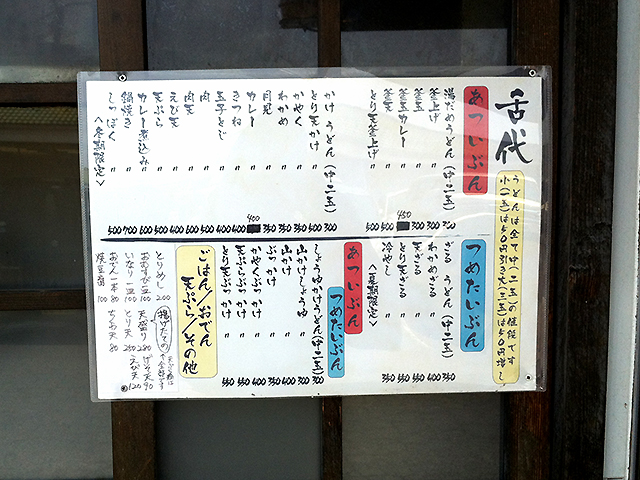 舌代
うどんは全て中(二玉)の値段です
小(一玉)は50円引き大(三玉)は50円増し
あついぶん
湯だめうどん(中二玉) 300
釜上げ 〃
釜玉 〃
釜玉カレー 〃 450
釜天 〃 500
とり天釜上げ 〃 500
かけうどん(中二玉) 300
とり天かけ 〃 500
かやく 〃 350
わかめ 〃 350
月見 〃 350
カレー 〃 400
きつね 〃 400
玉子とじ 〃 400
肉 〃 400
肉天 〃
えび天 〃
天ぷら 〃
カレー煮込み 〃
鍋焼き 〃 700
しっぽく 〃 500
<冬期限定>
つめたいぶん
ざるうどん(中二玉) 350
わかめざる 〃
天ざる 〃
とり天ざる 〃
冷やし 〃
<夏期限定>
あついぶん
つめたいぶん
しょうゆかけうどん(中二玉) 300
山かけしょうゆ 〃
山かけ 〃
ぶっかけ 〃
かやくぶっかけ 〃
天ぷらぶっかけ 〃
とり天ぶっかけ 〃
ごはん/おでん
天ぷら/その他
とりめし 200
おむすび一皿 100
いなり一皿 100
おでん一本 80
焼豆腐 100
揚げたての
天盛り 280
とり天 250
ちく天 80
げそ天 90
えび天 120